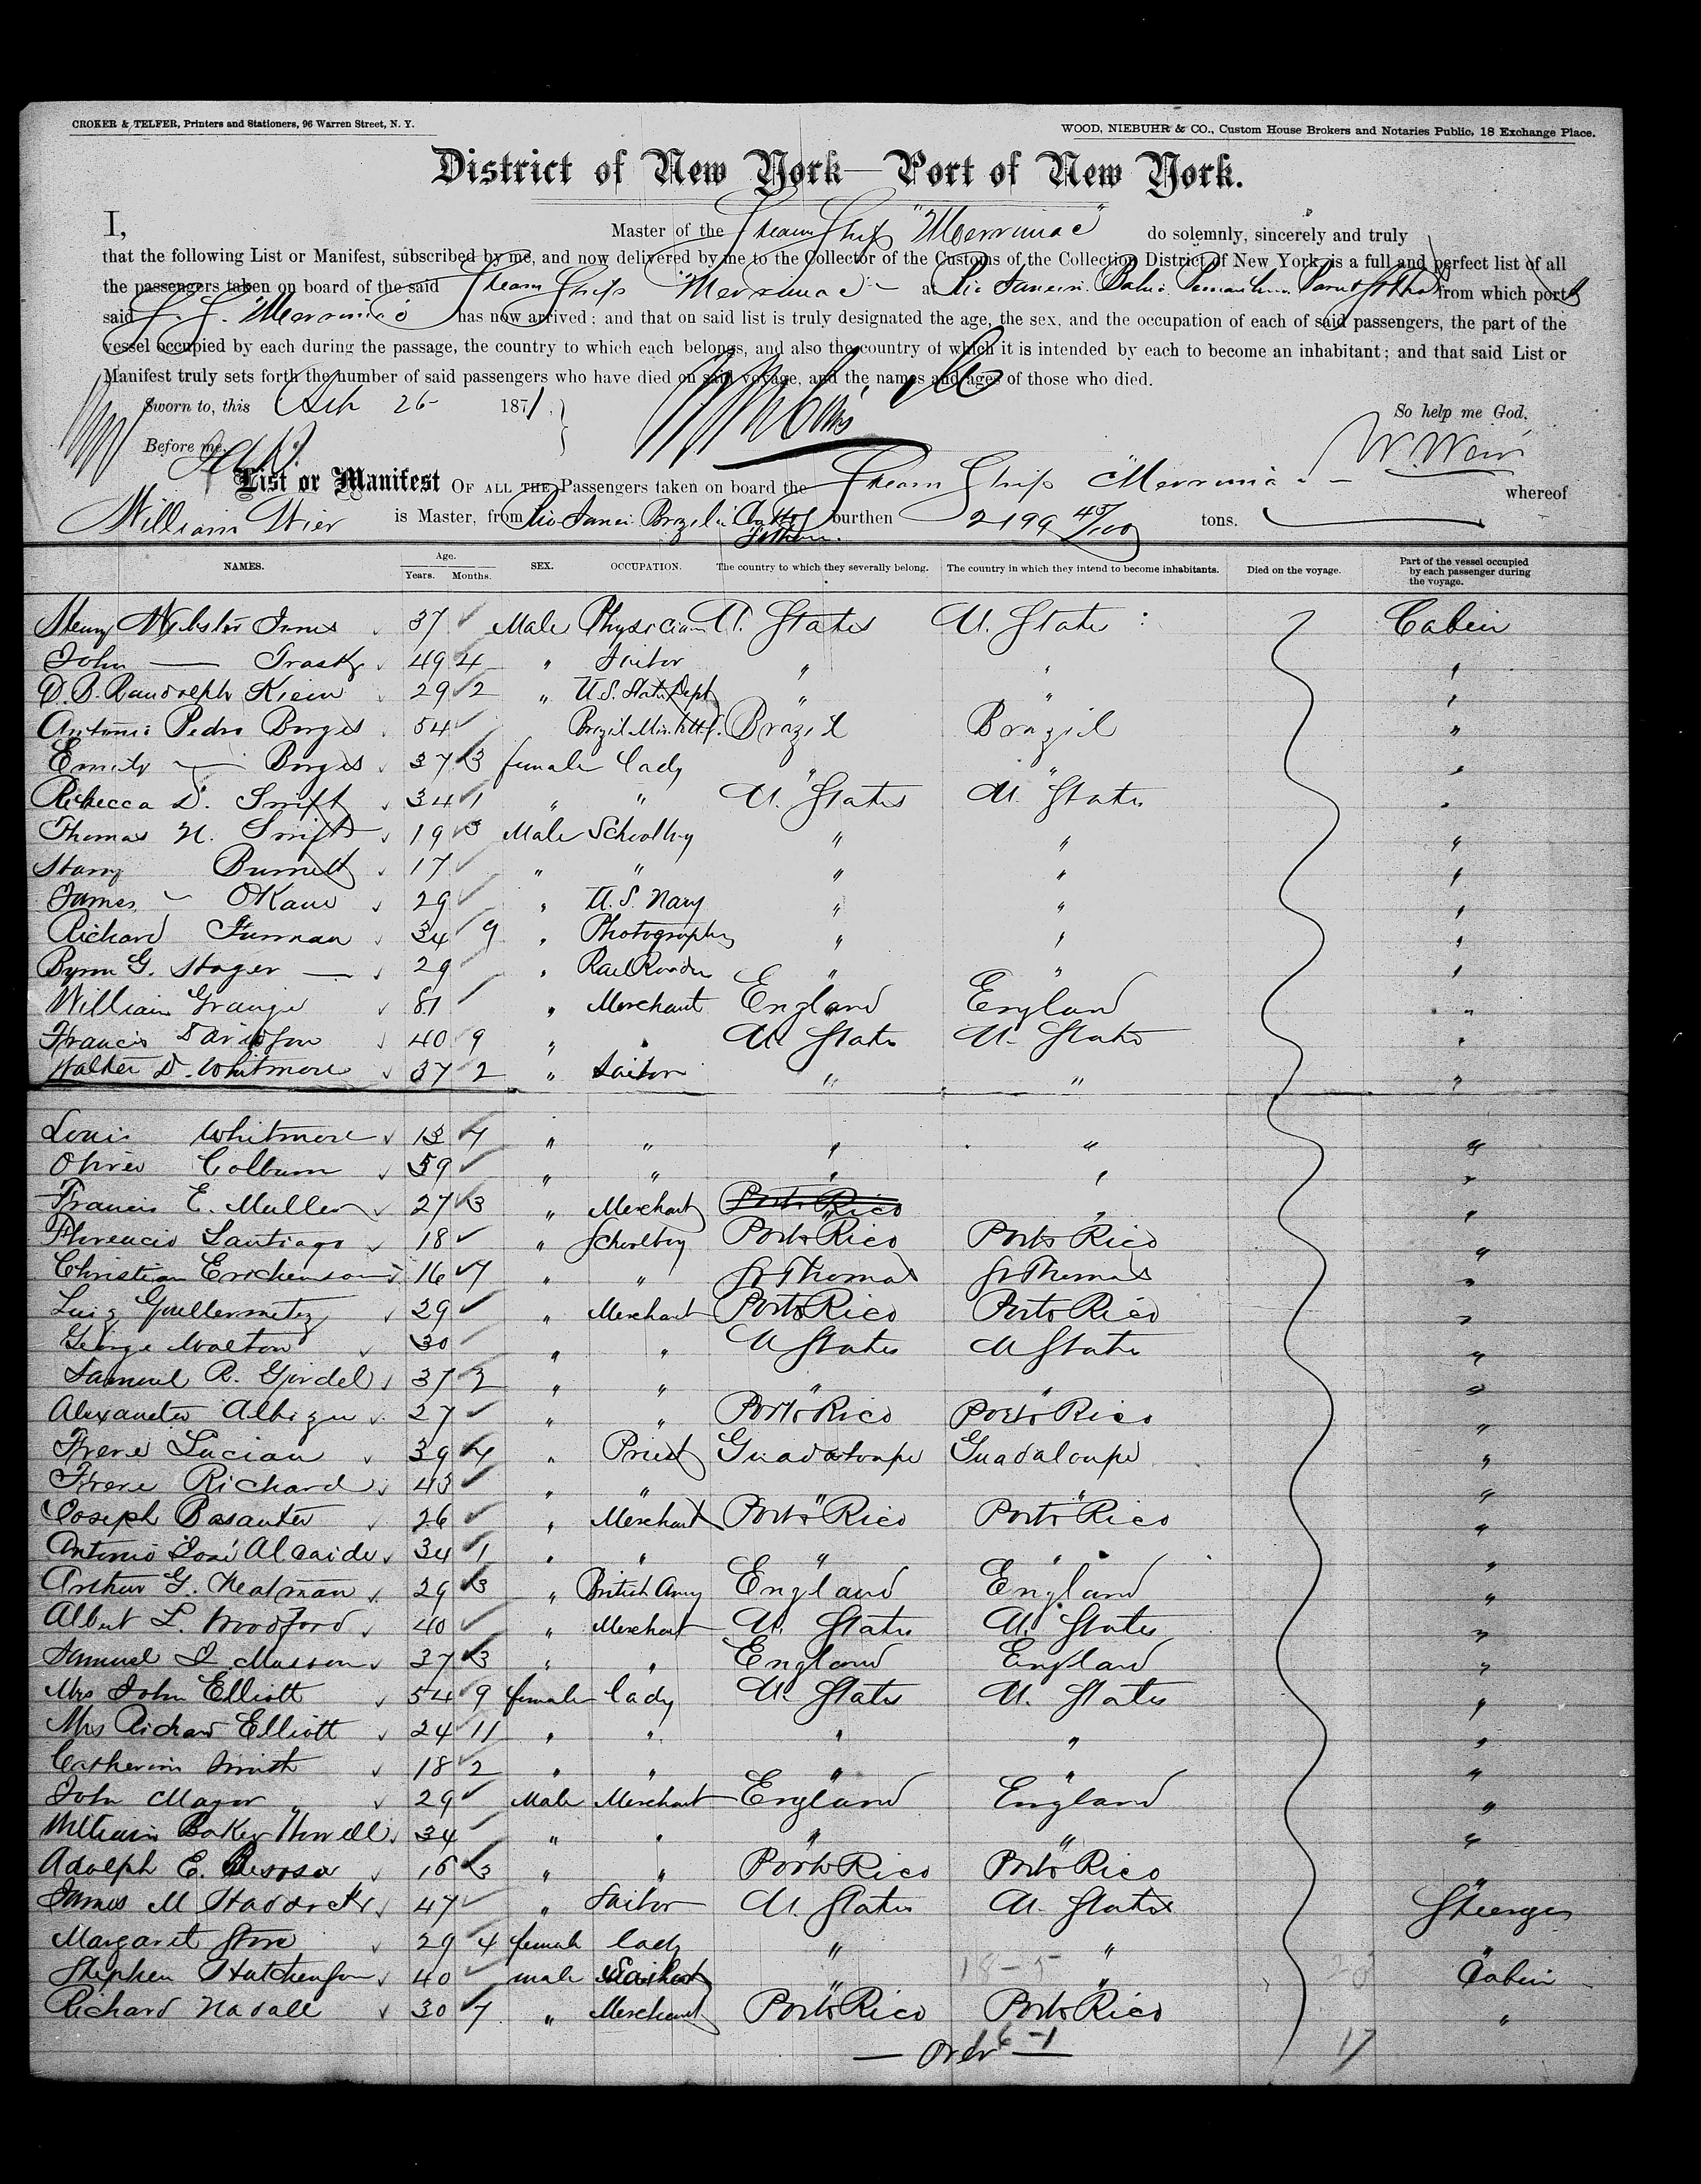 CROKER & TELFER, Printers and Stationers, 96 Warren Street, N. Y.
WOOD, NIEBUHR & CO., Custom House Brokers and Notaries Public, 18 Exchange Place.
District of New York—Port of New York.
I, Master of the Steam Ship "Merrimac" do solemnly, sincerely and truly
that the following List or Manifest, subscribed by me, and now delivered by me to the Collector of the Customs of the Collection District of New York, is a full and perfect list of all
the passengers taken on board of the said Steam Ship "Merrimac" at Rio Janeiro Bahia from which port
said S. S. "Merrimac" has now arrived; and that on said list is truly designated the age, the sex, and the occupation of each of said passengers, the part of the
vessel occupied by each during the passage, the country to which each belongs, and also the country of which it is intended by each to become an inhabitant; and that said List or
Manifest truly sets forth the number of said passengers who have died on said voyage, and the names and ages of those who died.
Sworn to, this 26 1871.
So help me God.
Before me,
W. Weir
List or Manifest OF ALL THE Passengers taken on board the Steam Ship Merrimac whereof
William Wier is Master, from Rio Janei Brazil burthen 2199 45/100 tons.
NAMES. Age. Years. Months. SEX. OCCUPATION. The country to which they severally belong. The country in which they intend to become inhabitants. Died on the voyage. Part of the vessel occupied by each passenger during the voyage.
Henry Webster Jones 37 Male Physician U. States U. States Cabin
John — Trask 49 4 " Sailor " " "
D. B. Randolph Keim 29 2 " U.S. State Dept " " "
Antonio Pedro Borges 54 Brazil Brazil "
Emily — Borges 37 3 female lady " " "
Rebecca D. Swift 34 1 " " U. States U. States "
Thomas N. Swift 19 3 Male Schoolboy " " "
Harry Burnett 17 " " " " "
James — OKane 29 " U. S. Navy " " "
Richard Furman 34 9 " Photographer " " "
Byron G. Stager — 29 " RailRoader " " "
William Grange 81 " Merchant England England "
Francis Davidson 40 9 " " U. States U. States "
Walter D. Whitmore 37 2 " Sailor " " "
Louis Whitmore 13 7 " " " " "
Oliver Colburn 39 " " " " "
Francis E. Muller 27 3 " Merchant Porto Rico " " "
Florencio Santiago 18 " Schoolboy Porto Rico Porto Rico "
Christian Erichenson 16 7 " " St Thomas St Thomas "
Luiz Guillermetz 29 " Merchant Porto Rico Porto Rico "
George Walton 30 " " U States U States "
Samuel R. Girdel 37 2 " " " " "
Alexander Albizu 27 " " Porto Rico Porto Rico "
Frere Lucian 39 4 " Priest Guadaloupe Guadaloupe "
Frere Richard 43 " " " " "
Joseph Basanter 26 " Merchant Porto Rico Porto Rico "
Antonio José Alcaide 34 1 " " " " "
Arthur G. Neatman 29 3 " British Army England England "
Albert L. Woodford 40 " Merchant U. States U. States "
Samuel I. Masson 37 3 " " England England "
Mrs John Elliott 54 9 female lady U. States U. States "
Mrs Richard Elliott 24 11 " " " " "
Catherine Smith 18 2 " " " " "
John Mayor 29 Male Merchant England England "
William Baker Howell 34 " " " " "
Adolph E. Besosa 15 3 " " Porto Rico Porto Rico "
James M Haddock 47 " Sailor U. States U. States Steerage
Margaret Stone 29 4 female lady " " "
Stephen Hutchenson 40 male " " Cabin
Richard Nadall 30 7 " Merchant Porto Rico Porto Rico "
— Over — 16-1 17